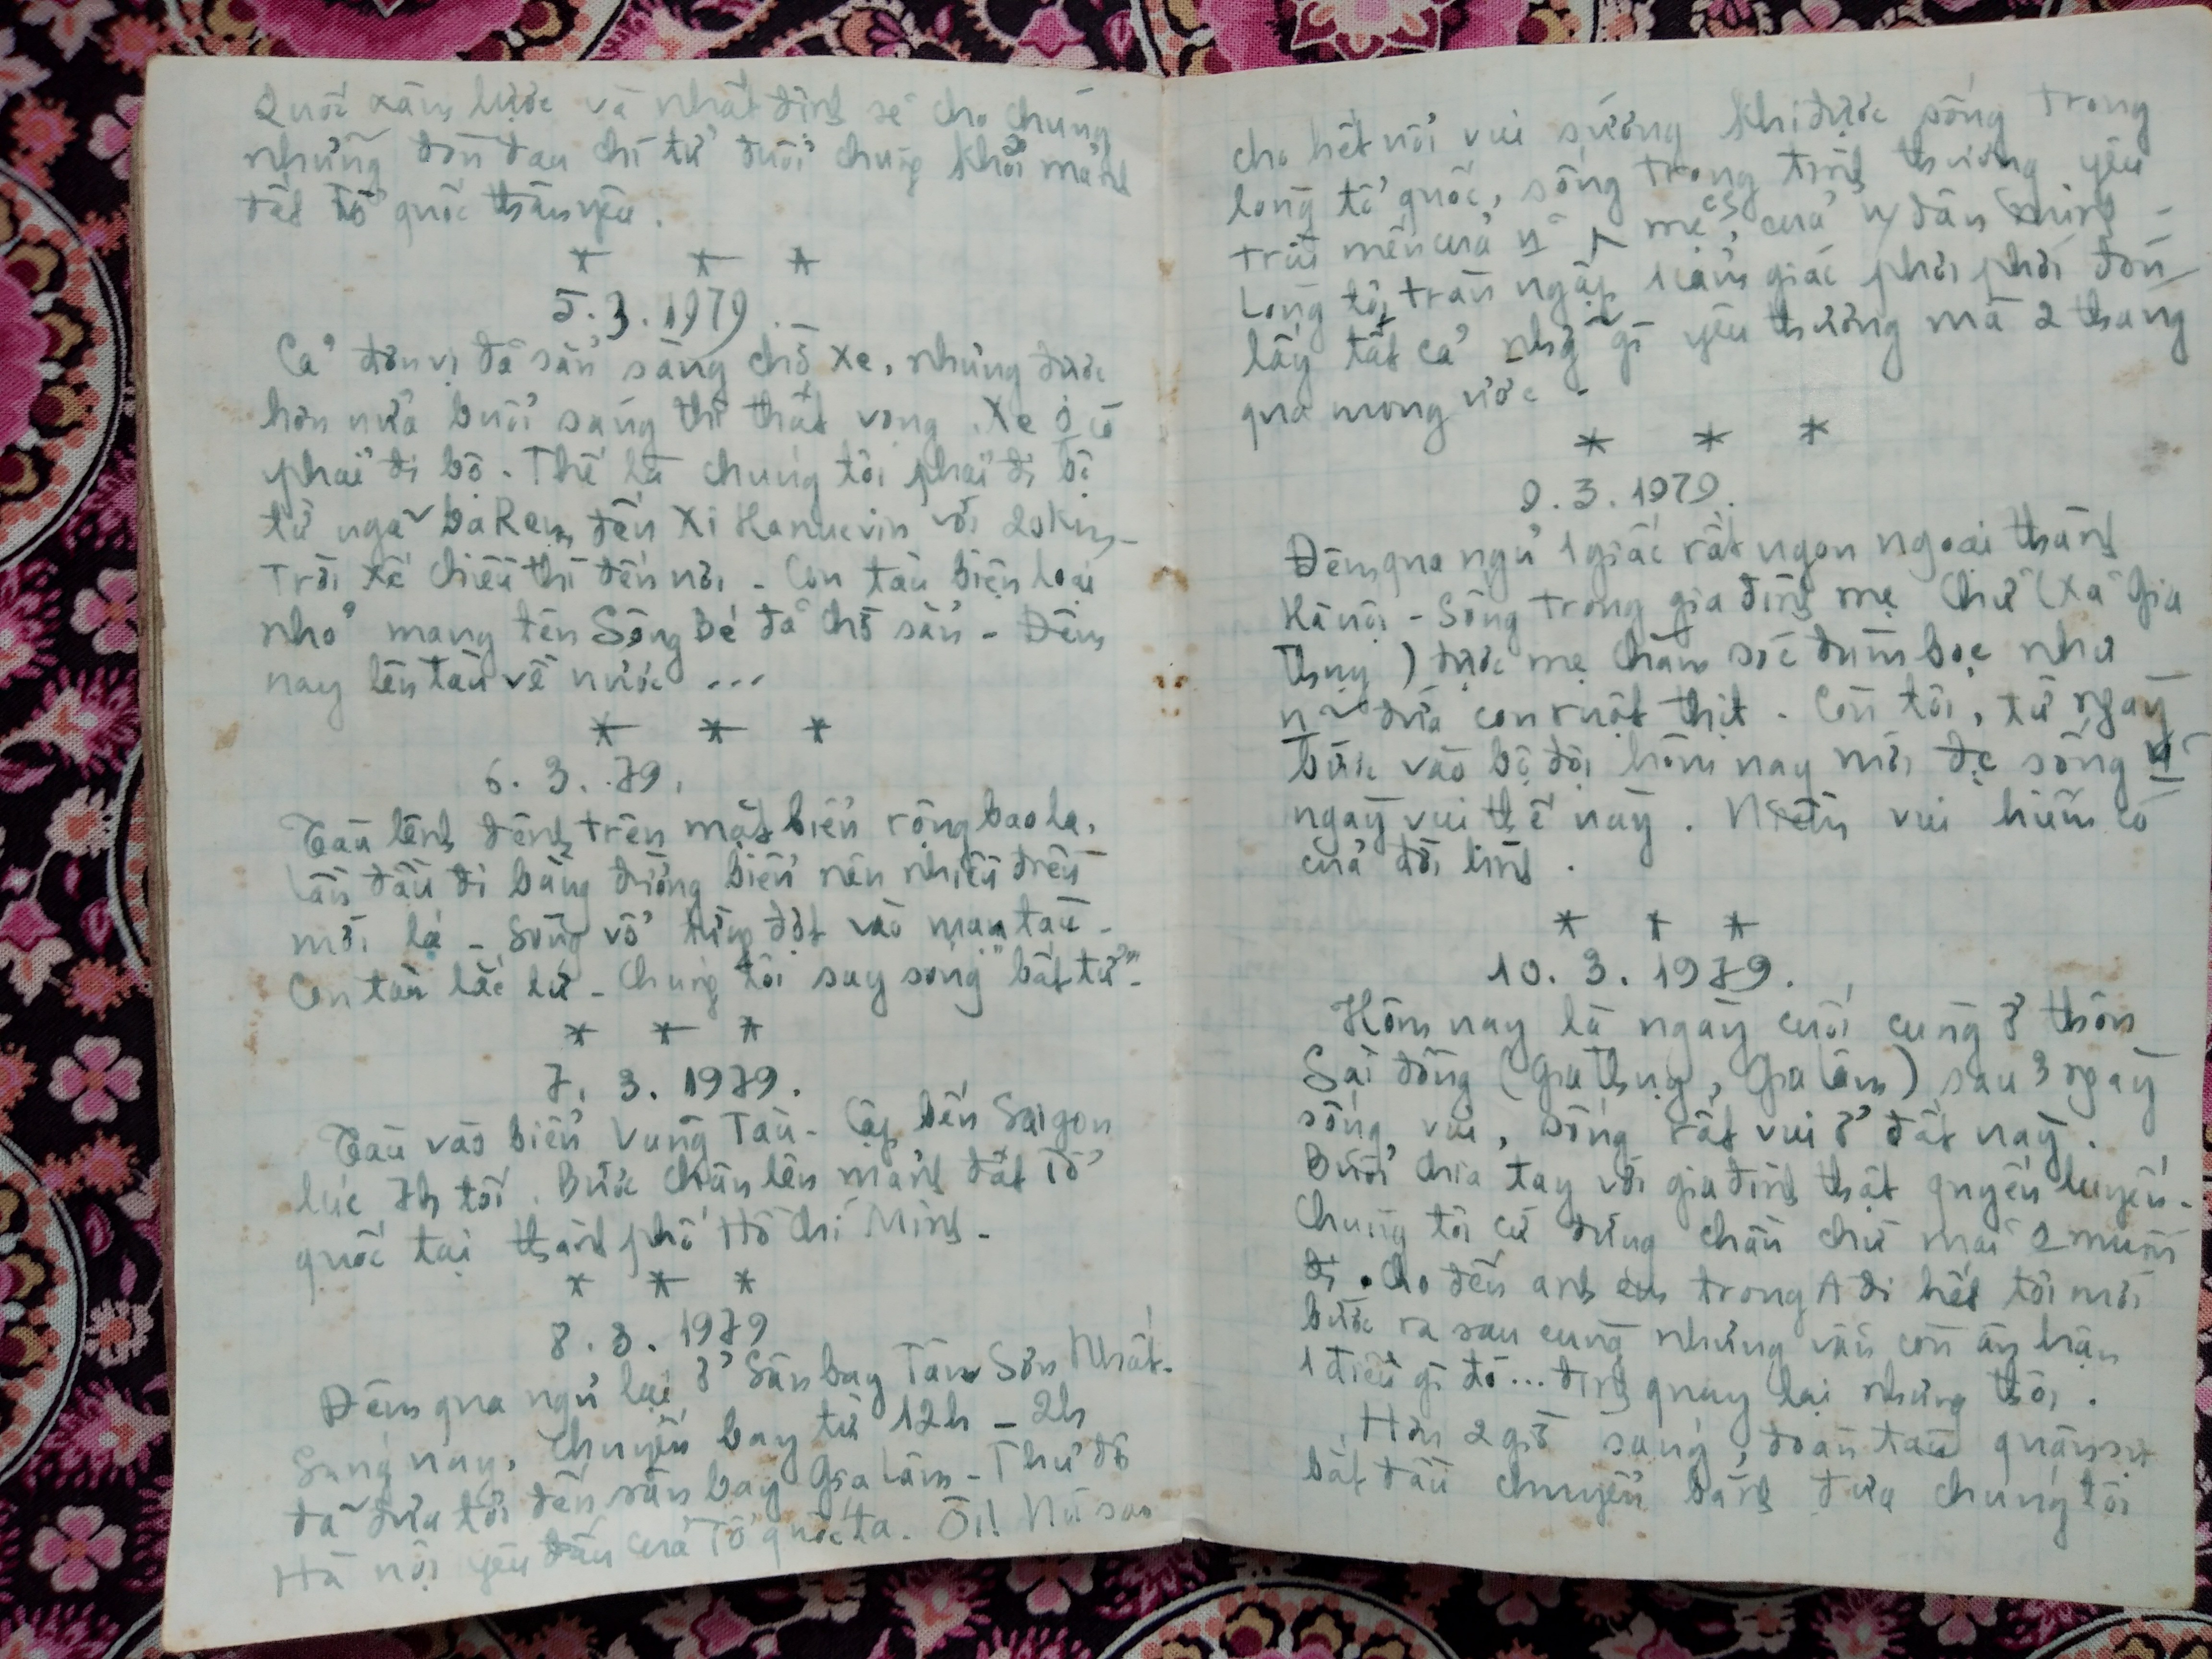 Quốc xâm lược và nhất định sẽ cho chúng
những đòn đau chí tử đuổi chúng khỏi mảnh
đất tổ quốc thân yêu.
* * *
5.3.1979.
Cả đơn vị đã sẵn sàng chờ xe, nhưng được
hơn nửa buổi sáng thì thất vọng. Xe o có
phải đi bộ - Thế là chúng tôi phải đi bộ
từ ngã ba Rem đến Xi Hanucvin với 20km -
Trời xế chiều thì đến nơi - Con tàu biển loại
nhỏ mang tên Sông Bé đã chờ sẵn - Đêm
nay lên tàu về nước ...
* * *
6.3.79.
Tàu lênh đênh trên mặt biển rộng bao la,
lần đầu đi bằng đường biển nên nhiều điều
mới lạ - Sóng vỗ từng đợt vào mạn tàu -
Con tàu lắc lư - Chúng tôi say sóng "bất tử" -
* * *
7.3.1979.
Tàu vào biển Vũng Tàu - Cập bến Saigon
lúc 7h tối. Bước chân lên mảnh đất Tổ
quốc tại thành phố Hồ Chí Minh -
* * *
8.3.1979
Đêm qua ngủ lại ở Sân bay Tân Sơn Nhất -
Sáng nay, chuyến bay từ 12h - 2h
đã đưa tôi đến sân bay Gia Lâm - Thủ đô
Hà nội yêu dấu của Tổ quốc ta. Ôi! Nói sao
cho hết nỗi vui sướng khi được sống trong
lòng tổ quốc, sống trong tình thương yêu
trìu mến của mẹ, của dân mình -
Lòng tôi tràn ngập 1 cảm giác phơi phới đón
lấy tất cả nhg~ gì yêu thương mà 2 tháng
qua mong ước -
* * *
9.3.1979.
Đêm qua ngủ 1 giấc rất ngon ngoại thành
Hà nội - Sống trong gia đình mẹ Chứ (Xã Gia
Thụy) được mẹ chăm sóc đùm bọc như
n~ đứa con ruột thịt. Còn tôi, từ ngày
bước vào bộ đội hôm nay mới đc sống n~
ngày vui thế này. Niềm vui hiếm có
của đời lính.
* * *
10.3.1979.
Hôm nay là ngày cuối cùng ở thôn
Sài đồng (Gia thụy, Gia Lâm) sau 3 ngày
sống vui, sống rất vui ở đất này.
Buổi chia tay với gia đình thật quyến luyến -
Chúng tôi cứ đứng chần chừ mãi o muốn
đi. Cho đến anh em trong A đi hết tôi mới
bước ra sau cùng nhưng vẫn còn ân hận
1 điều gì đó... định quay lại nhưng thôi.
Hơn 2 giờ sáng, đoàn tàu quân sự
bắt đầu chuyển bánh đưa chúng tôi